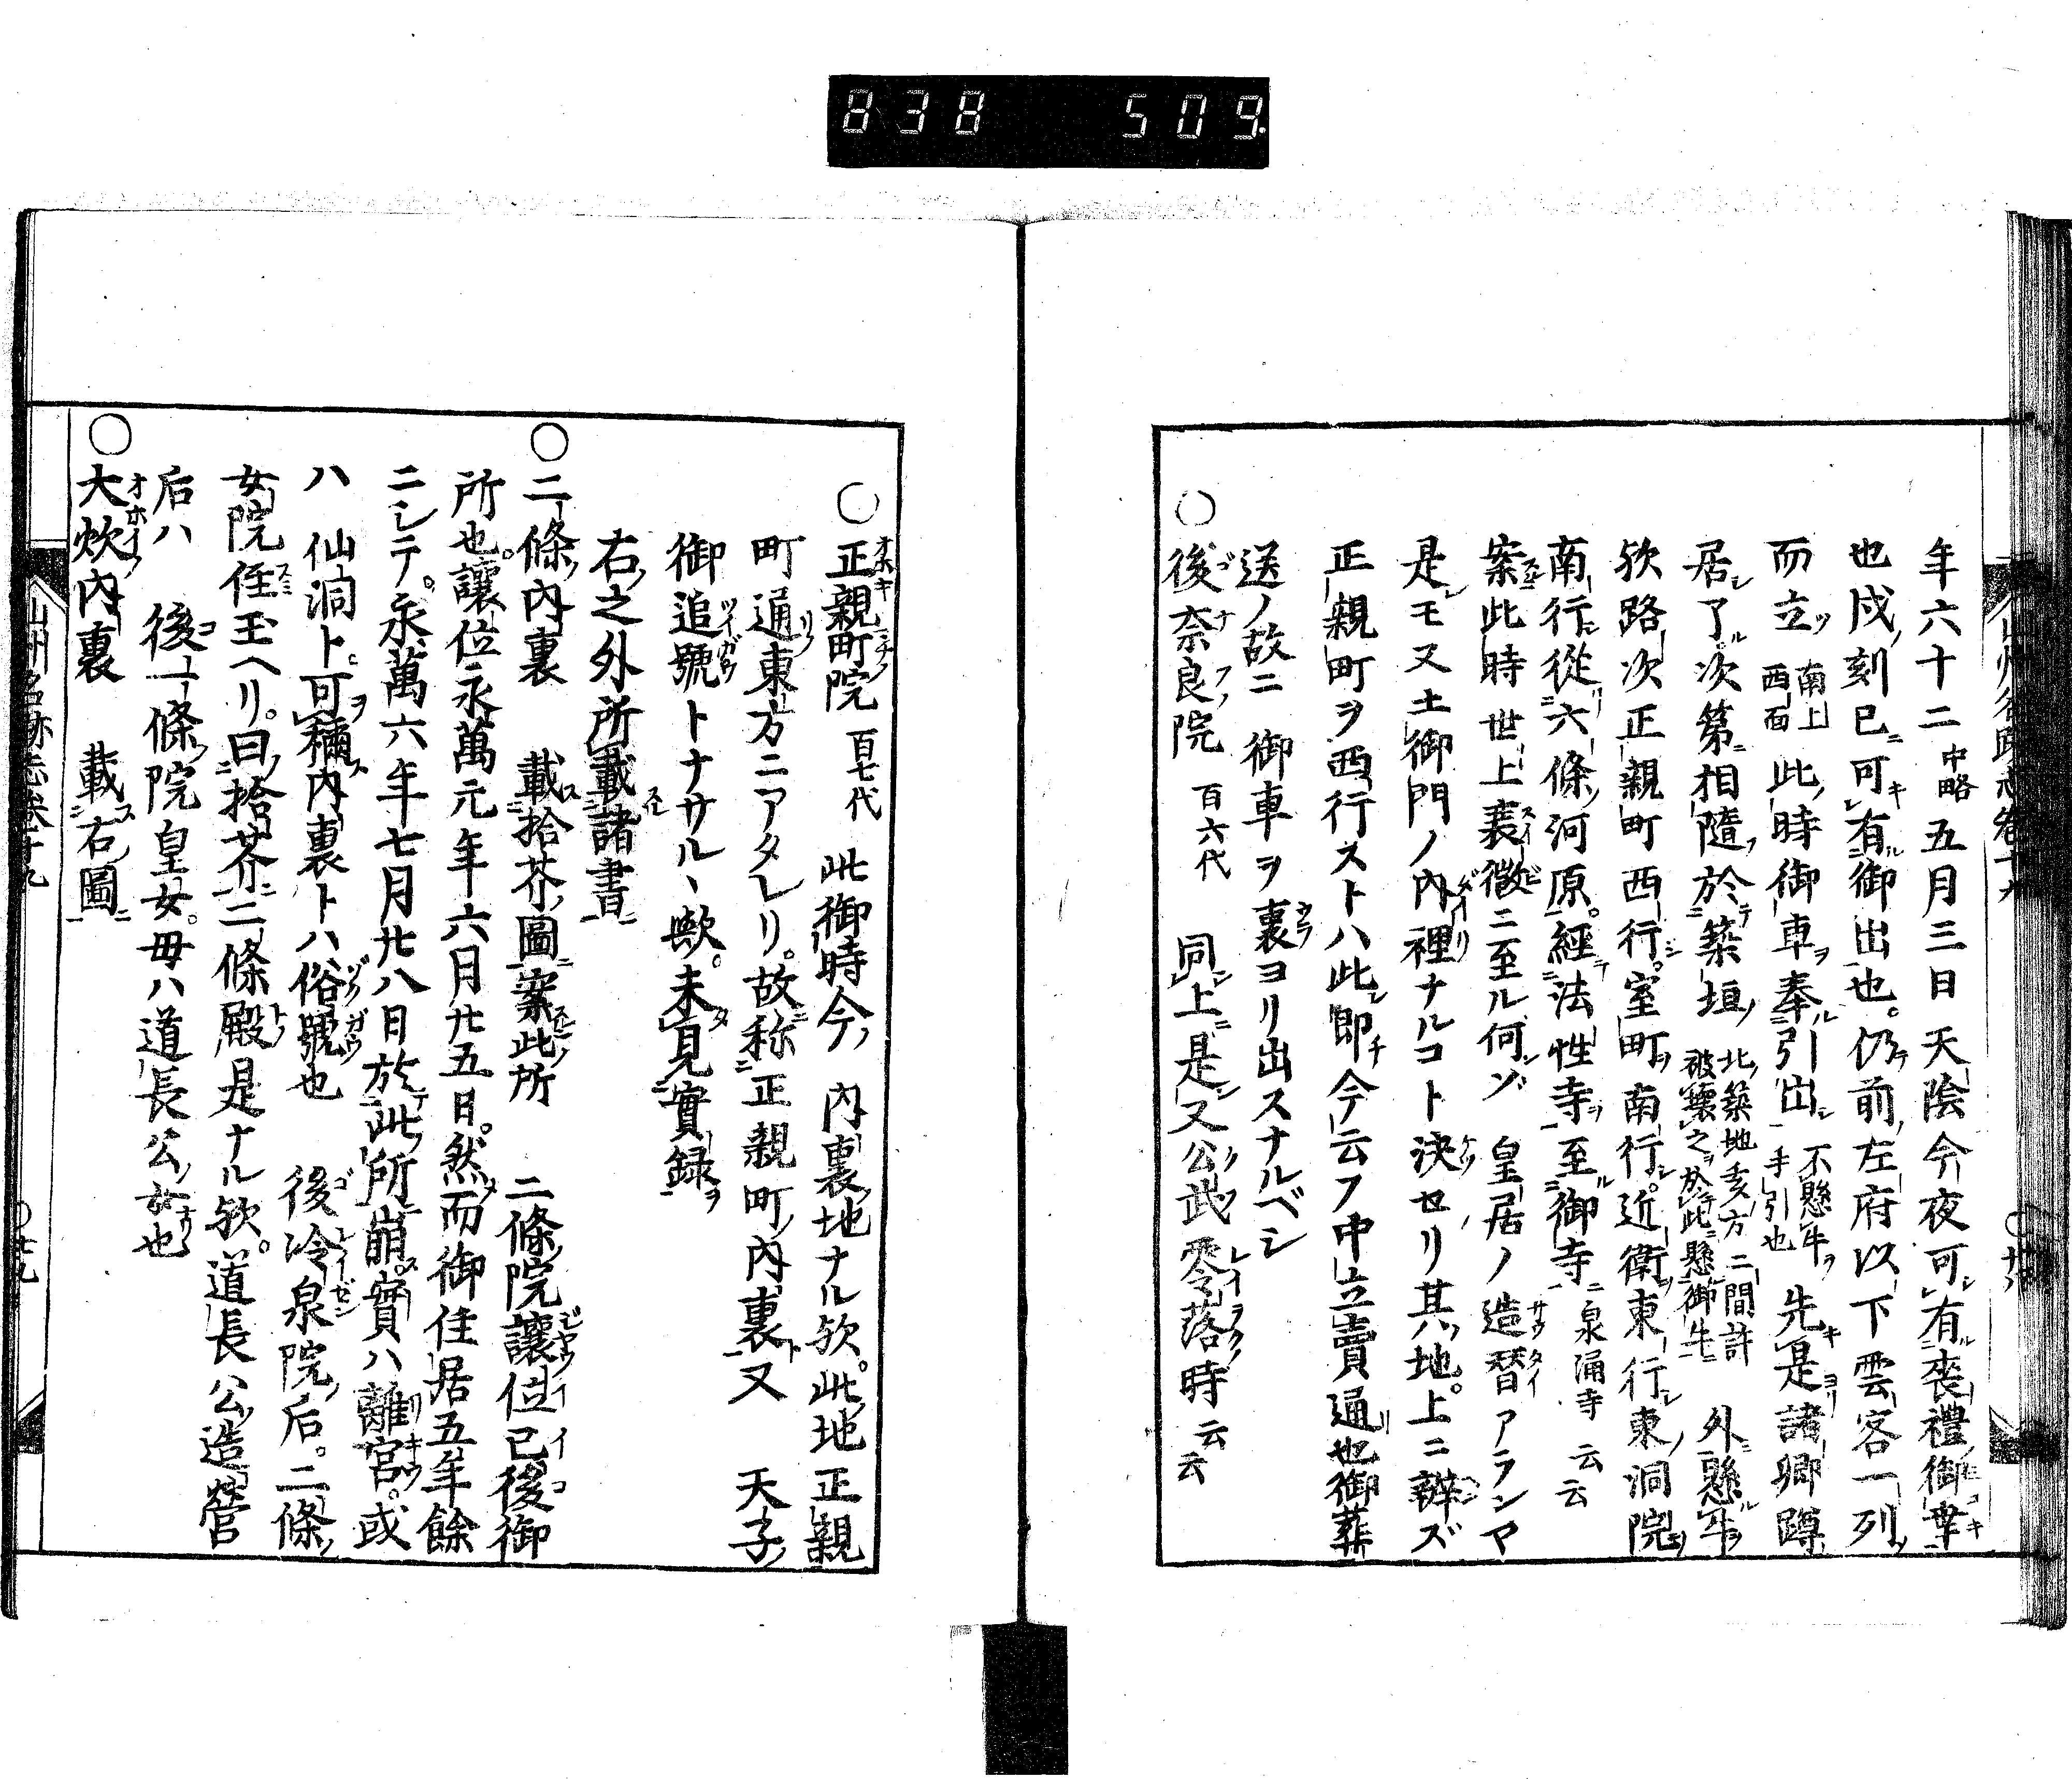 838 509.
年六十二 中略 五月三日天陰今夜可有喪禮御幸
也戌刻已可有御出也。仍前左府以下雲客一列
而立 南上西面 此時御車奉引出 不懸牛手引也 先是諸卿蹲
居了次第相隨於築垣 北築地亥方二間許被壞之於此懸御牛 外懸牛
欤路次正親町西行。室町南行。近衛東行東洞院
南行從六條河原。經法性寺至御寺 泉涌寺 云云
案此時世上衰微ニ至ル何ゾ 皇居ノ造替アランマ
是モ又土御門ノ內裡ナルコト決セリ其地。上ニ辨ズ
正親町ヲ西行ストハ此即今云フ中立賣通也御葬
送ノ故ニ 御車ヲ裏ヨリ出スナルベシ
○後奈良院 百六代 同上是又公武零落時云云
○正親町院 百七代 此御時今ノ內裏地ナル欤。此地正親
町通東方ニアタレリ。故称正親町ノ內裏又 天子ノ
御追號トナサルヽ歟。未見實録
右之外所載諸書
○二條內裏 載拾芥圖案此所 二條院讓位已後御
所也。讓位永萬元年六月廿五日。然而御住居五年餘
ニシテ。永萬六年七月廿八日於此所崩。實ハ離宮。或
ハ 仙洞ト可稱內裏トハ俗號也 後冷泉院ノ后。二條ノ
女院住玉ヘリ。曰拾芥二條殿是ナル欤。道長公造營
后ハ 後一條院皇女。母ハ道長公ノ女也
○大炊內裏 載右圖